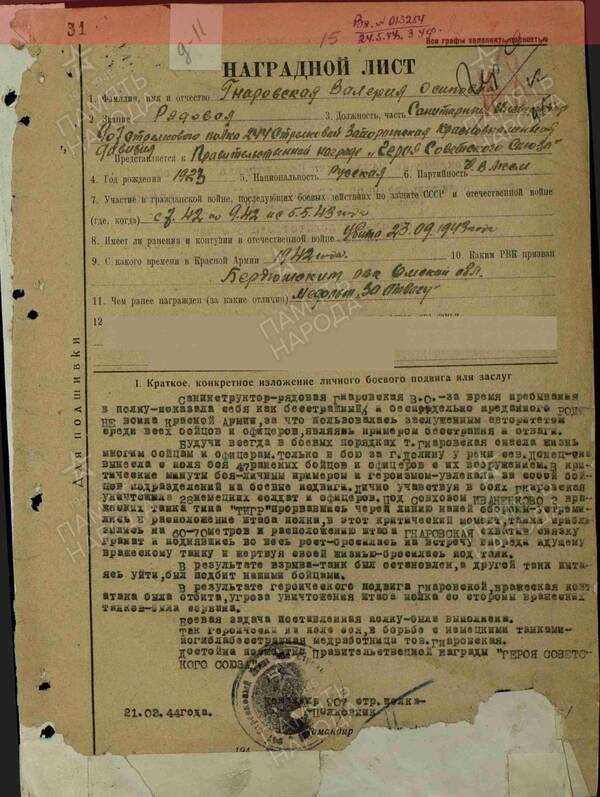 31
д-11
15
Род. № 013254
24.5.44г.
Все графы заполнять полностью
НАГРАДНОЙ ЛИСТ
1. Фамилия, имя и отчество Гнаровская Валерия Осиповна
2. Звание Рядовая 3. Должность, часть Санитарный
907 стрелкового полка 244 Стрелковой Запорожская Краснознаменной
дивизия
Представляется к Правительственной награде „Героя Советского Союза"
4. Год рождения 1923 5. Национальность Русская 6. Партийность
7. Участие в гражданской войне, последующих боевых действиях по защите СССР и отечественной войне
(где, когда) с 7.42 по 9.42 и с 5.5.43 года
8. Имеет ли ранения и контузии в отечественной войне Убита 23.09.1943 года
9. С какого времени в Красной Армии 1942 года. 10. Каким РВК призван
Бердюжским рвк Омской обл.
11. Чем ранее награжден (за какие отличия) Медалью „За Отвагу"
12
Для подшивки
I. Краткое, конкретное изложение личного боевого подвига или заслуг
Санинструктор-рядовая Гнаровская В.О.-за время пребывания
в полку-показала себя как бесстрашный и беспредельно преданного РОДИ
НЕ воина Красной Армии, за что пользовалась заслуженным авторитетом
среди всех бойцов и офицеров, являясь примером бесстрашия и отваги.
Будучи всегда в боевых порядках т.Гнаровская спасла жизнь
многим бойцам и офицерам. Только в бою за г.Долину у реки сев.Донец-она
вынесла с поля боя 47 раненых бойцов и офицеров с их вооружением. В кри-
тические минуты боя-личным примером и героизмом-увлекала за собой бой-
цов подразделений на боевые подвиги. Лично участвуя в боях Гнаровская
уничтожила 28 немецких солдат и офицеров. Под Совхозом ИВАНЕНКОВО 2 вра-
жеских танка типа "ТИГР" прорвавшись через линию нашей обороны-устреми-
лись в расположение штаба полка, в этот критический момент, танки прибли-
зились на 60-70 метров к расположению штаба ГНАРОВСКАЯ схватив связку
гранат и поднявшись во весь рост-бросилась на встречу впереди идущему
вражескому танку и жертвуя своей жизнью-бросилась под танк.
В результате взрыва-танк был остановлен, а другой танк пыта-
ясь уйти, был подбит нашими бойцами.
В результате героического подвига Гнаровской, вражеская конт
атака была отбита, угроза уничтожения штаба полка со стороны вражеских
танков-была сорвана.
Боевая задача поставленная полку-была выполнена.
Так героически на поле боя, в борьбе с немецкими танками-
погибла бесстрашная медработница тов.Гнаровская.
Достойна посмертно Правительственной награды "ГЕРОЯ СОВЕТС-
КОГО СОЮЗА".
Командир 907 стр.полка-
Полковник
21.03.44года.
Командир
194
ПАМЯТЬ НАРОДА